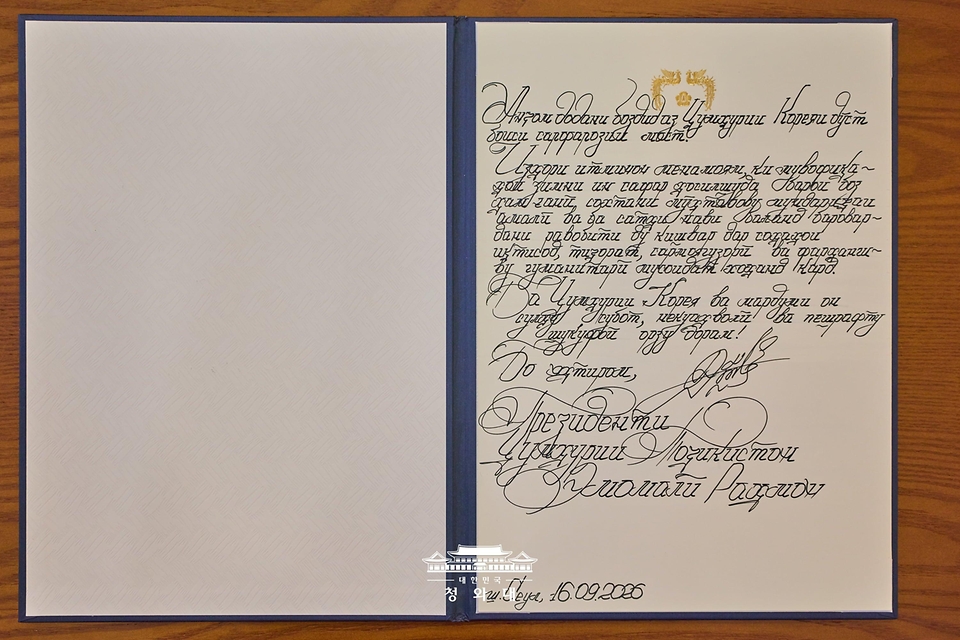 Анҷом додани боздид аз Ҷумҳурии Кореяи дӯст
боиси сарфарозии мост!
Изҳори итминон менамоям, ки мувофиқа-
ҳои зимни ин сафар ҳосилшуда барои боз
ҳам ғанӣ сохтани муҳтавову мундариҷаи
амалӣ ва ба сатҳи нави баланд баровар-
дани равобити ду кишвар дар соҳаҳои
иқтисод, тиҷорат, сармоягузорӣ ва фарҳанги-
ву гуманитарӣ мусоидат хоҳанд кард.
Ба Ҷумҳурии Корея ва мардуми он
сулҳу субот, некуаҳволӣ ва пешрафту
шукуфоӣ орзу дорам!
Бо эҳтиром,
Президенти
Ҷумҳурии Тоҷикистон
Эмомалӣ Раҳмон
ш. Сеул, 16.09.2026
대한민국
청와대